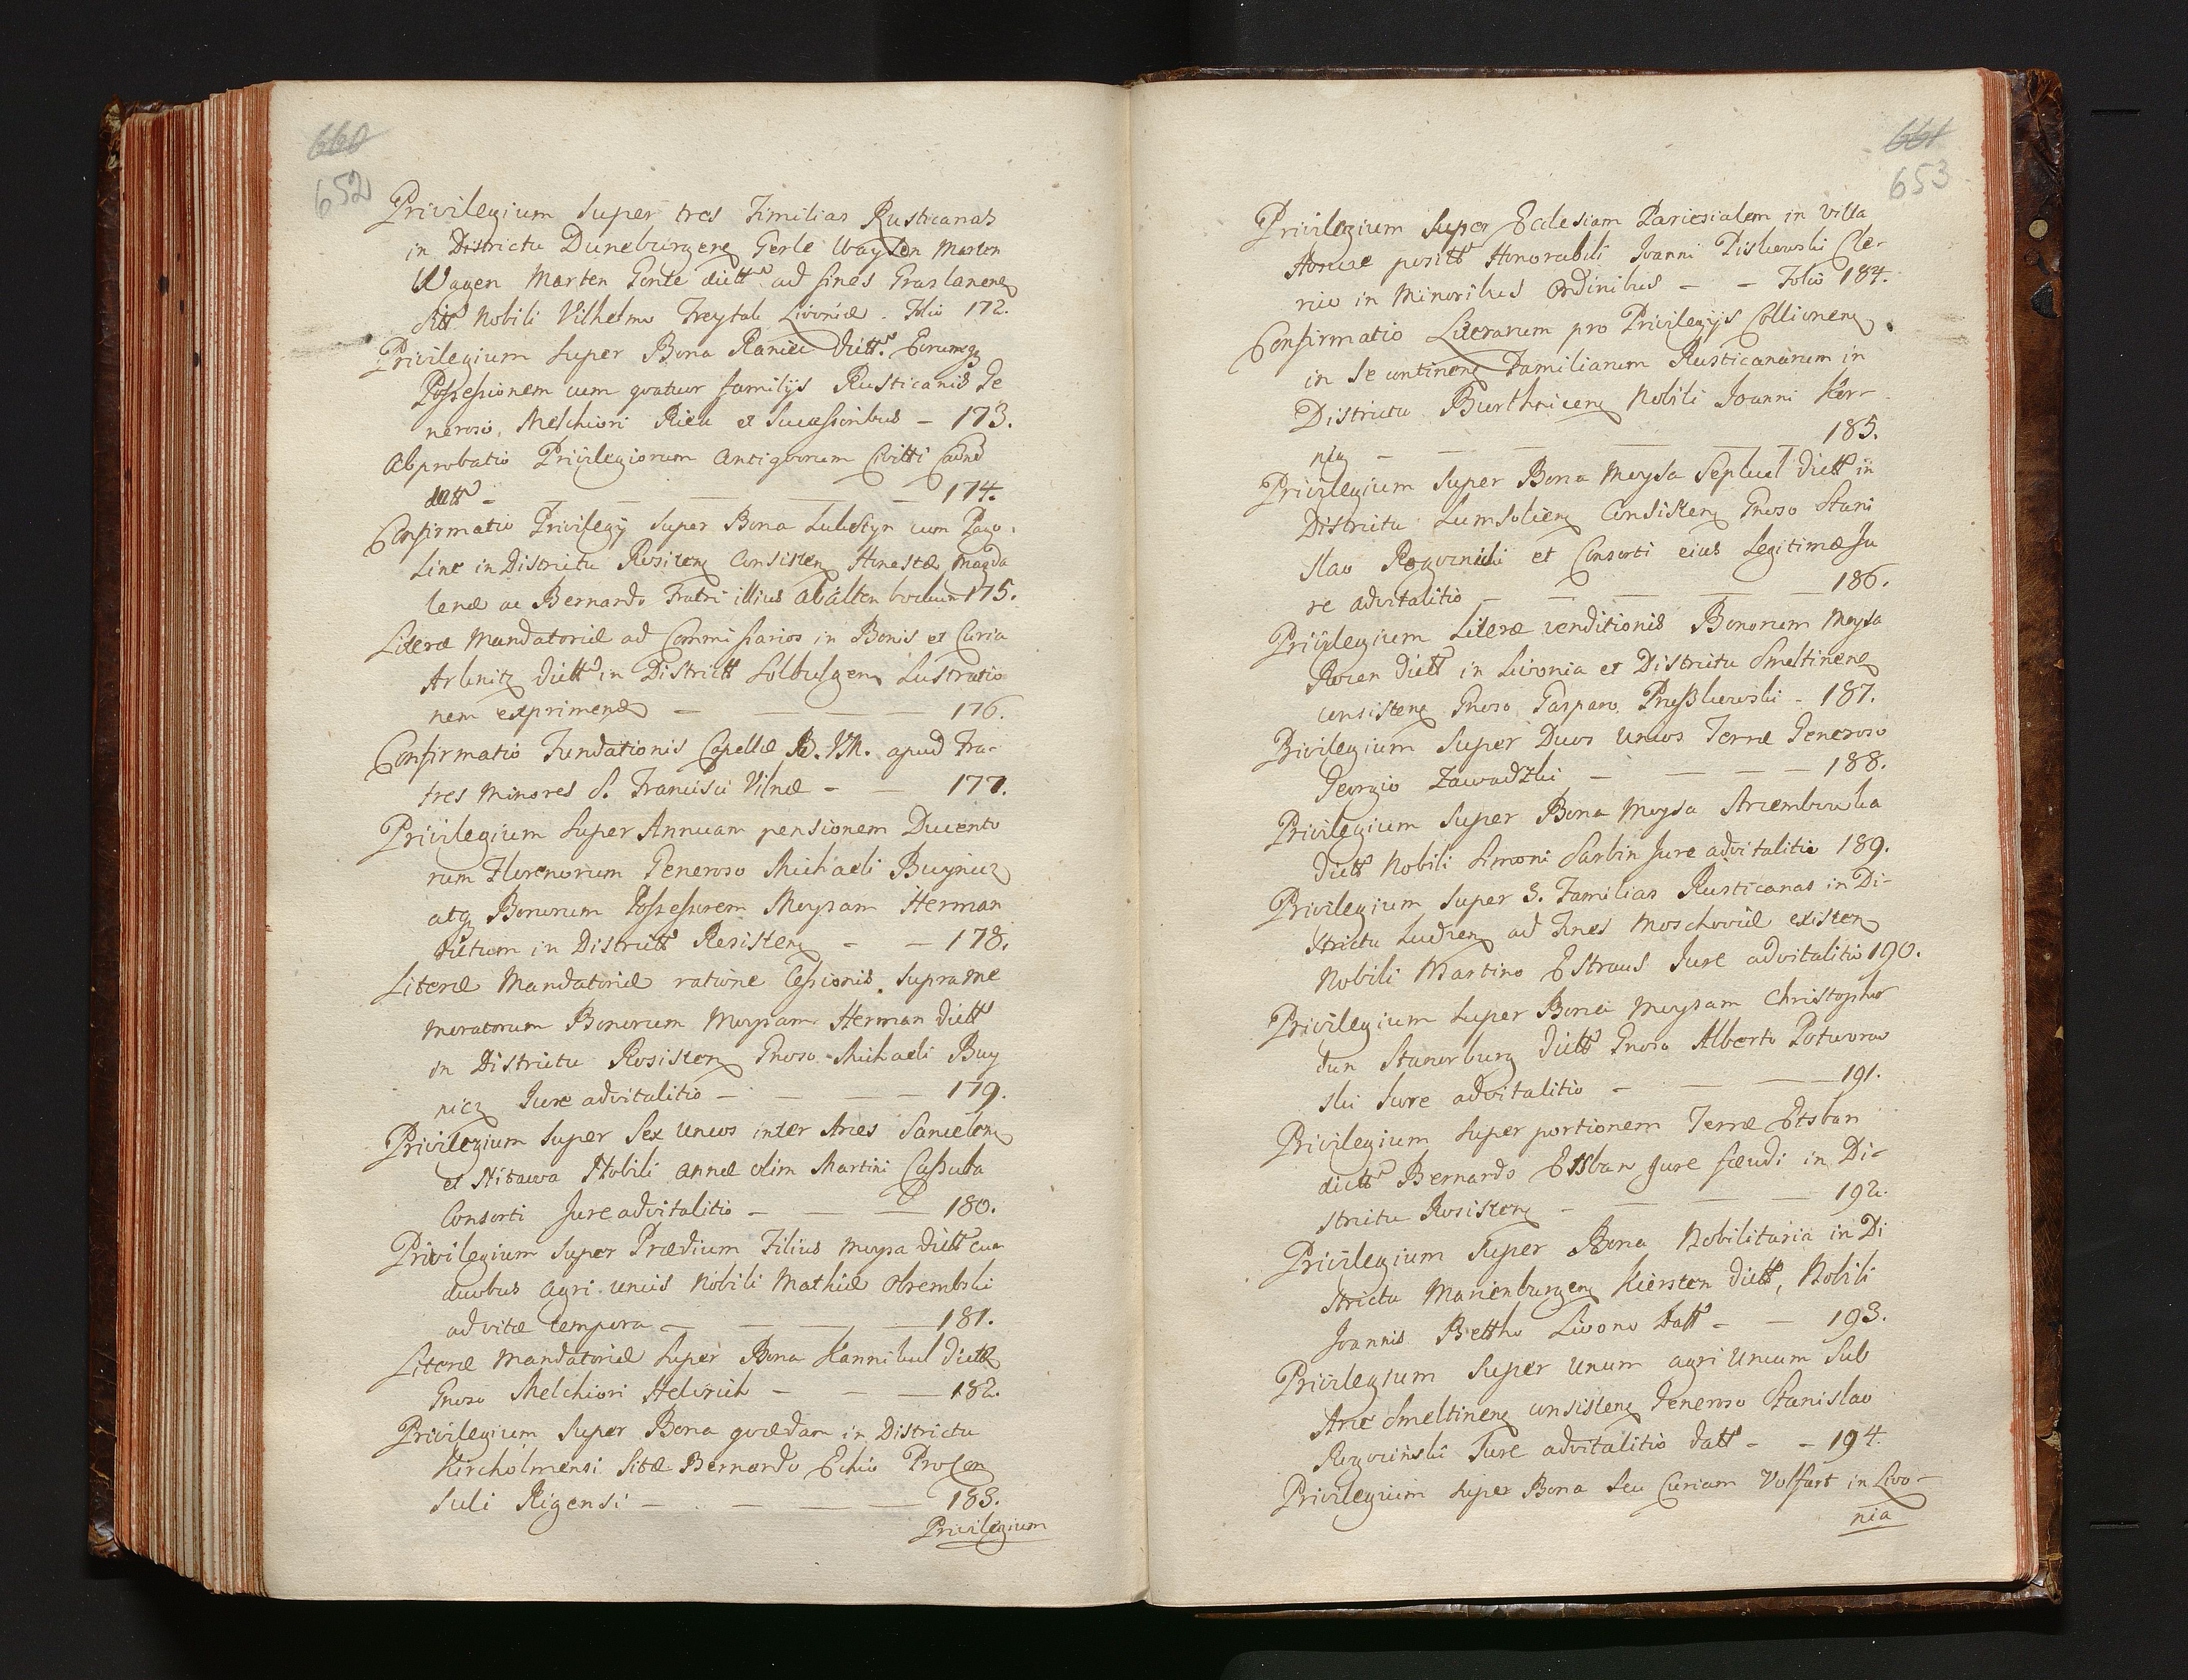 660
652
Privilegium super tres Fimilias Rusticanas
in Districtu Duneburgen Gerle Waylon Marten
Wagen Marten Gonte dictt ad fines Graslanen
sitt Nobili Vilhelmo Freytak Livoniæ. Folio 172.
Privilegium super Bona Raniec dictt. Eorumqz
Possessionem cum qvatuor familijs Rusticanis Ge
neroso, Melchiori Rick et Successoribus - 173.
Abprobatio Privilegiorum Antiqvorum Civitti
datt - 174.
Confirmatio Privilegij super Bona Lubstyn cum Pago
Line in Districtu Rositen Consisten Honestæ Magda
lenæ ac Bernardo Fratri illius ab alten bockum 175.
Literæ Mandatoriæ ad Commissarios in Bonis et Curia
Arlnitz dictt in Districtt Solbulgen Lustratio
nem exprimen - 176.
Confirmatio Fundationis Capellæ B. V. M. apud Fra-
tres Minores S. Francisci Vilnæ - 177.
Privilegium super Annuam pensionem Ducento
rum Florenorum Generoso Michaeli Buynicz
atqz Bonorum Possessorem Moysam Herman
dictum in Districtt Resisten - 178.
Literæ Mandatoriæ ratione Cessionis supra me
moratorum Bonorum Moysam Herman dictt
in Districtu Rosisten Gnoso Michaeli Buy
nicz Jure advitalitio - 179.
Privilegium super Sex Uncos inter Arces Sancelen
et Nitawa Nobili Annæ olim Martini Cassuba
Consorti Jure advitalitio - 180.
Privilegium super Prædium Filius Moysa dictt cum
duobus agri uncis Nobili Mathiæ Obrembski
ad vitæ tempora - 181.
Literæ Mandatoriæ super Bona Kannikul dictt
Gnoso Melchiori Helvrich - 182.
Privilegium super Bona qvædam in Districtu
Kircholmensi sitæ Bernardo Echio Procon
suli Rigensi - 183.
Privilegium
661
653
Privilegium super Ecclesiam Pariesialem in Villa
posittt Honorabili Joanni Piskowski Cle-
rico in Minoribus Ordinibus - - Folio 184.
Confirmatio Literarum pro Privilegijs Collionen
in se continen Familiarum Rusticanarum in
Districtu Burthnicen Nobili Joanni Kor-
nig - 185.
Privilegium super Bona Moysa Sepkul dictt in
Districtu Lumsolien Consisten Gnoso Stani
slao Rogowski et Consorti eius Legitimæ Ju
re advitalitio - 186.
Privilegium Literæ venditionis Bonorum Moysa
Rozen dictt in Livonia et Districtu Smeltinen
consisten Gnoso Gasparo Prusskowski - 187.
Privilegium super Duos Uncos Terræ Generoso
Georgio Zawadzki - 188.
Privilegium super Bona Moysa Arcembowka
dictt Nobili Simoni Sarbin Jure advitalitio 189.
Privilegium super 3. Familias Rusticanas in Di-
strictu Ludzen ad Fines Moschoviæ existen
Nobili Martino Estraus Jure advitalitio 190.
Privilegium super Bona Moysam Christopher
dun Stanorburg dictt Gnoso Alberto Potworow
ski Jure advitalitio - 191.
Privilegium super portionem Terræ Etsban
dictt Bernardo Etsban Jure fœudi in Di-
strictu Rosisten - 192.
Privilegium super Bona Nobilitaria in Di
strictu Marienburgen Kiersten dictt, Nobili
Joannis Bettho Livono datt - - 193.
Privilegium super Unum agri Uncum sub
Arce Smeltinen consisten Generoso Stanislao
Rogowinski Jure advitalitio datt - - 194.
Privilegium super Bona seu Curiam Volfart in Livo-
nia